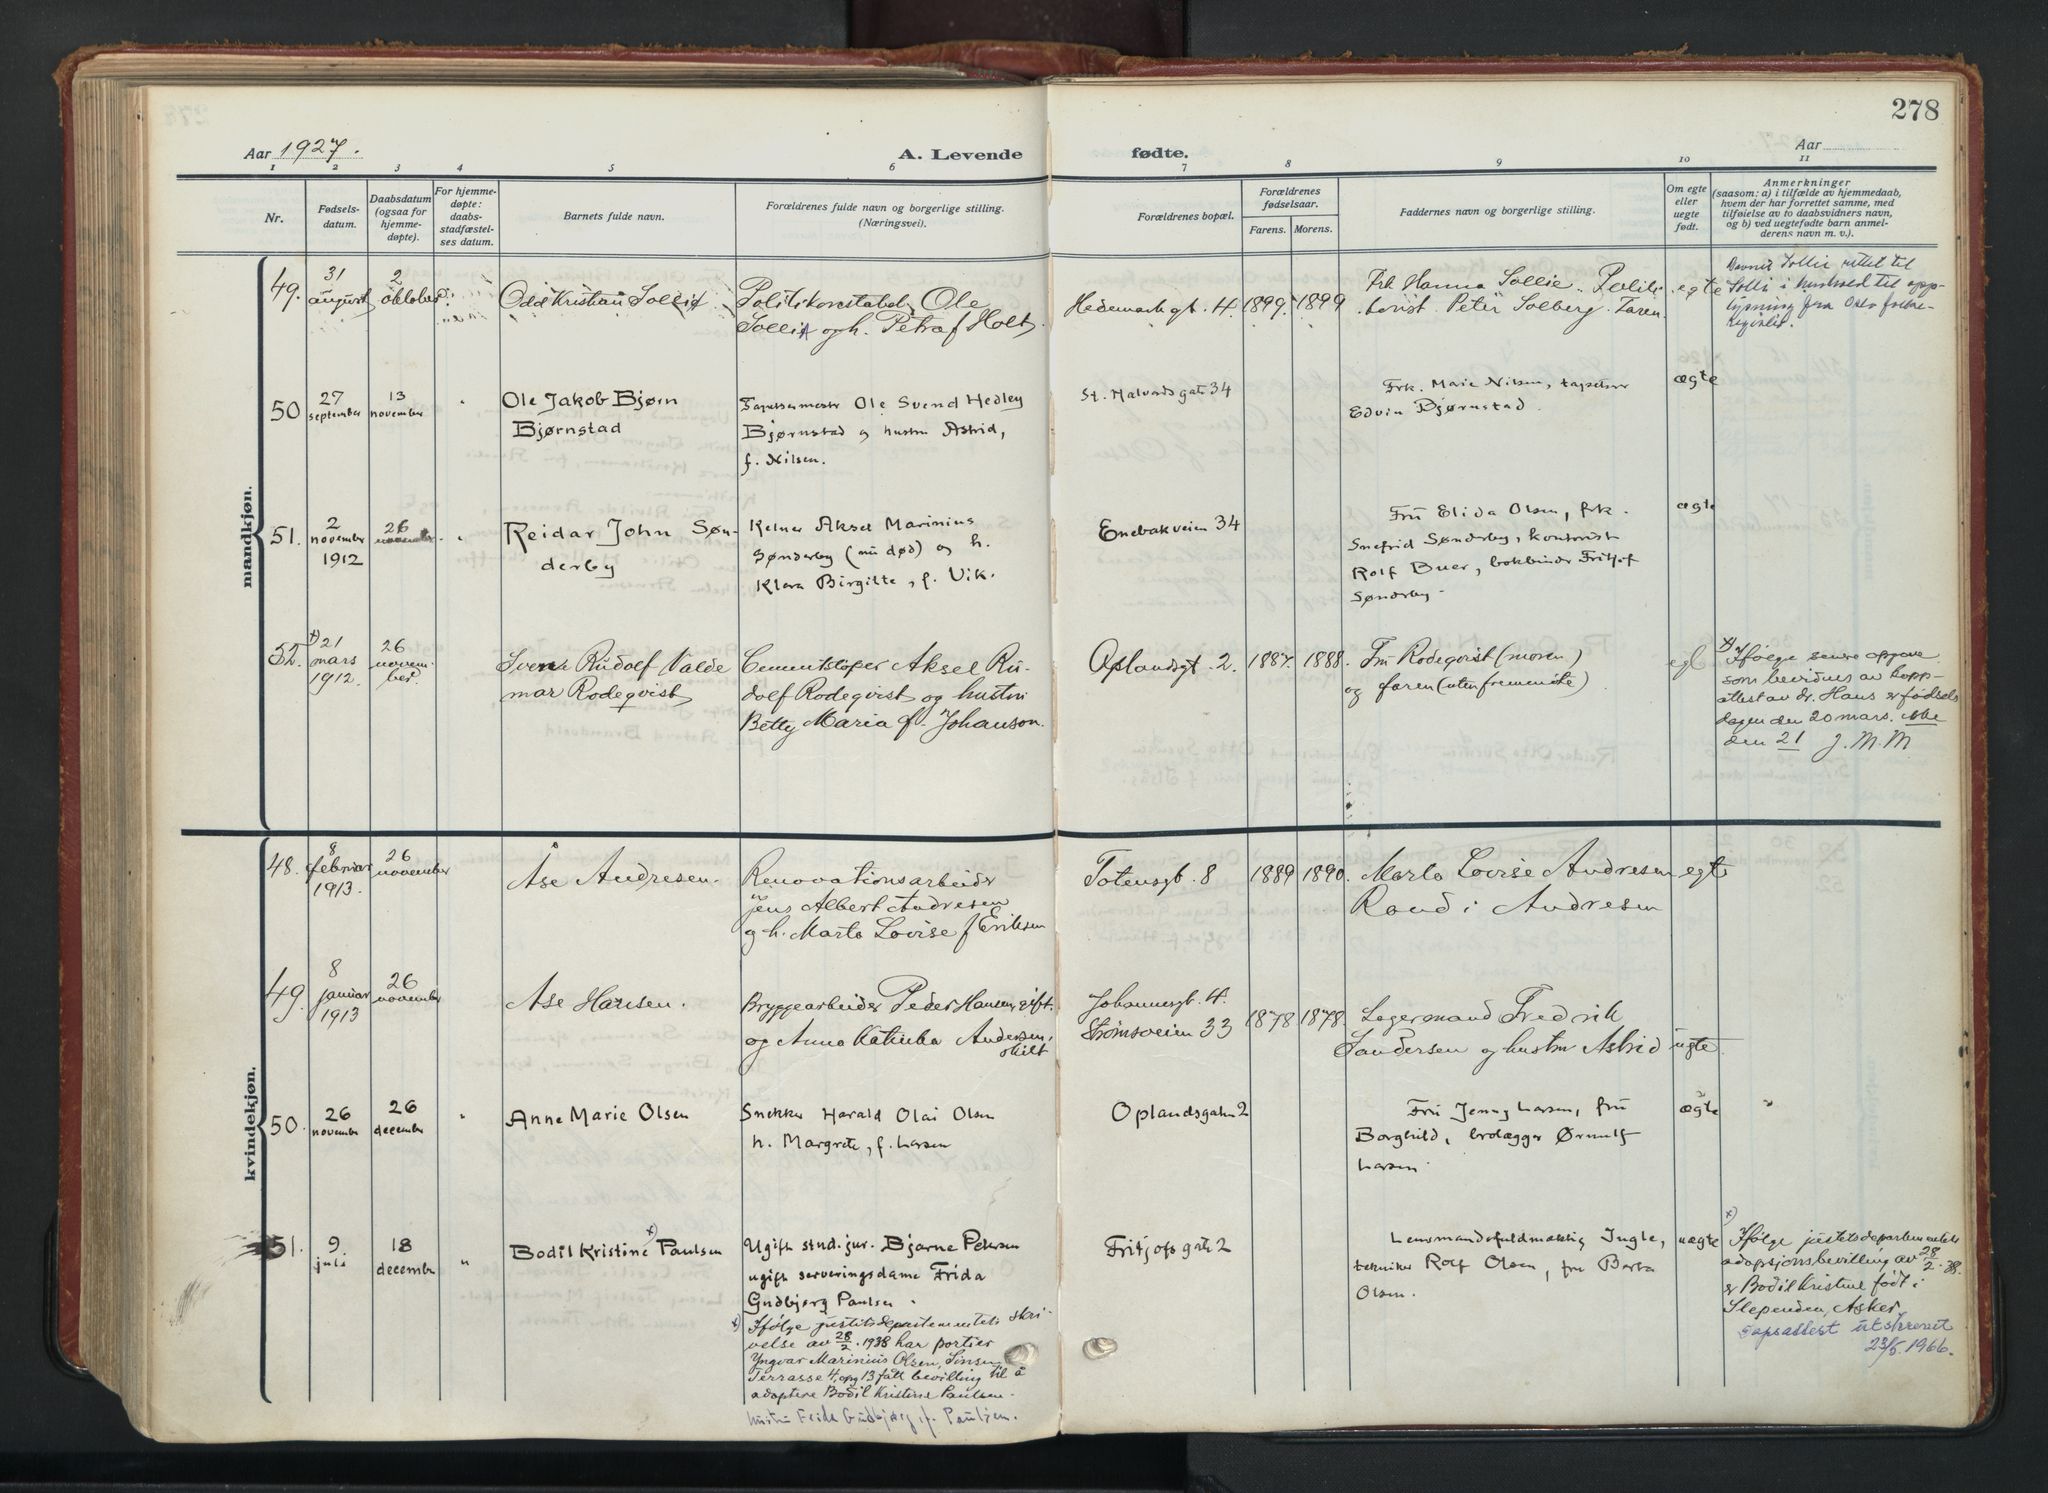 278
Aar 1927.
A. Levende
fødte.
Aar
1 2 3 4 5 6 7 8 9 10 11
Nr.
Fødsels-
datum.
Daabsdatum
(ogsaa for
hjemme-
døpte).
For hjemme-
døpte:
daabs-
stadfæstel-
ses datum.
Barnets fulde navn.
Forældrenes fulde navn og borgerlige stilling.
(Næringsvei).
Forældrenes bopæl.
Forældrenes
fødselsaar.
Farens. Morens.
Faddernes navn og borgerlige stilling.
Om egte
eller
uegte
født.
Anmerkninger
(saasom: a) i tilfælde av hjemmedaab,
hvem der har forrettet samme, med
tilføielse av to daabsvidners navn,
og b) ved uegtefødte barn anmel-
derens navn m. v.).
mandkjøn.
49.
31
august
2
oktober
Odd Kristian Solli
Politikonstabel Ole
Solli og h. Petra f Holt.
Hedemarkgt. 4
1899.
1899
Frk Hanna Sollie. Politi-
Peter Solberg. Faren.
egte
Solli rettet til
Solli i henhold til opp-
lysning fra Oslo folke-
50
27
september
13
november
"
Ole Jakob Bjørn
Bjørnstad
Tapetsermester Ole Svend Hedley
Bjørnstad og hustru Astrid,
f. Nilsen.
St. Halvardsgate 34
Frk. Marie Nilsen, tapetserer
Edvin Bjørnstad.
ægte
51.
2
november
1912
26
november
"
Reidar John Søn-
derby
Kelner Aksel Marinius
Sønderby (nu død) og h.
Klara Birgitte, f. Vik.
Enebakveien 34
Fru Elida Olsen, frk.
Snefrid Sønderby, kontorist
Rolf Buer, bokbinder Fritjof
Sønderby.
ægte
52.
x) 21
mars
1912.
26
novem-
ber.
Svend Rudolf Valde
mar Rodeqvist
Cementstøper Aksel Ru-
dolf Rodeqvist og hustru
Betty Maria f. Johanson.
Oplandsgt. 2.
1887.
1888.
Fru Rodeqvist (moren)
og faren (uten fremmøte)
egte
x) Ifølge senere opgave
som bevidnes av kopp-
attest av dr. Hans er fødsels
dagen den 20 mars. ikke
den 21 J. M. M
kvindekjøn.
48.
8
februar
1913.
26
november
Åse Andresen.
Renovationsarbeider
Jens Albert Andresen
og h. Marta Lovise f Eriksen
Totensgt. 8
1889
1890.
Marta Lovise Andresen
Randi Andresen
egte
49.
8
januar
1913
26
november
Åse Hansen.
Bryggearbeider Peder Hansen, gift.
og Anna Katinka Andersen,
skilt
Johannesgt. 4.
Strømsveien 33
1878
1878.
Lagermand Fredrik
Sandersen og hustru Astrid
uegte.
50.
26
november
26
december
"
Anne Marie Olsen
Snekker Harald Olai Olsen
h. Margrete, f. Larsen
Oplandsgaten 2
Fru Jenny Larsen, fru
Borghild, brolægger Ørnulf
Larsen.
ægte
"
51.
9
juli
18
december
"
Bodil Kristine x) Paulsen
Ugift stud. jur. Bjarne Petersen
ugift serveringsdame Frida
Gudbjørg Paulsen.
x) Ifølge justitsdepartementets skri-
velse av 28/2. 1938 har portier
Yngvar Marinius Olsen, Sinsen
Terrasse 4, opg 13 fått bevilling til å
adoptere Bodil Kristine Paulsen.
hustru Frida Gudbjørg f. Paulsen.
Fritjofsgate 2
Lensmandsfuldmektig Ingle,
tekniker Rolf Olsen, fru Berta
Olsen.
uægte
x)
Ifølge justitsdepartementets
adopsjonsbevilling av 28/2. 38.
er Bodil Kristine født i
Slependen, Asker
Dåpsattest utskrevet
23/5. 1966.